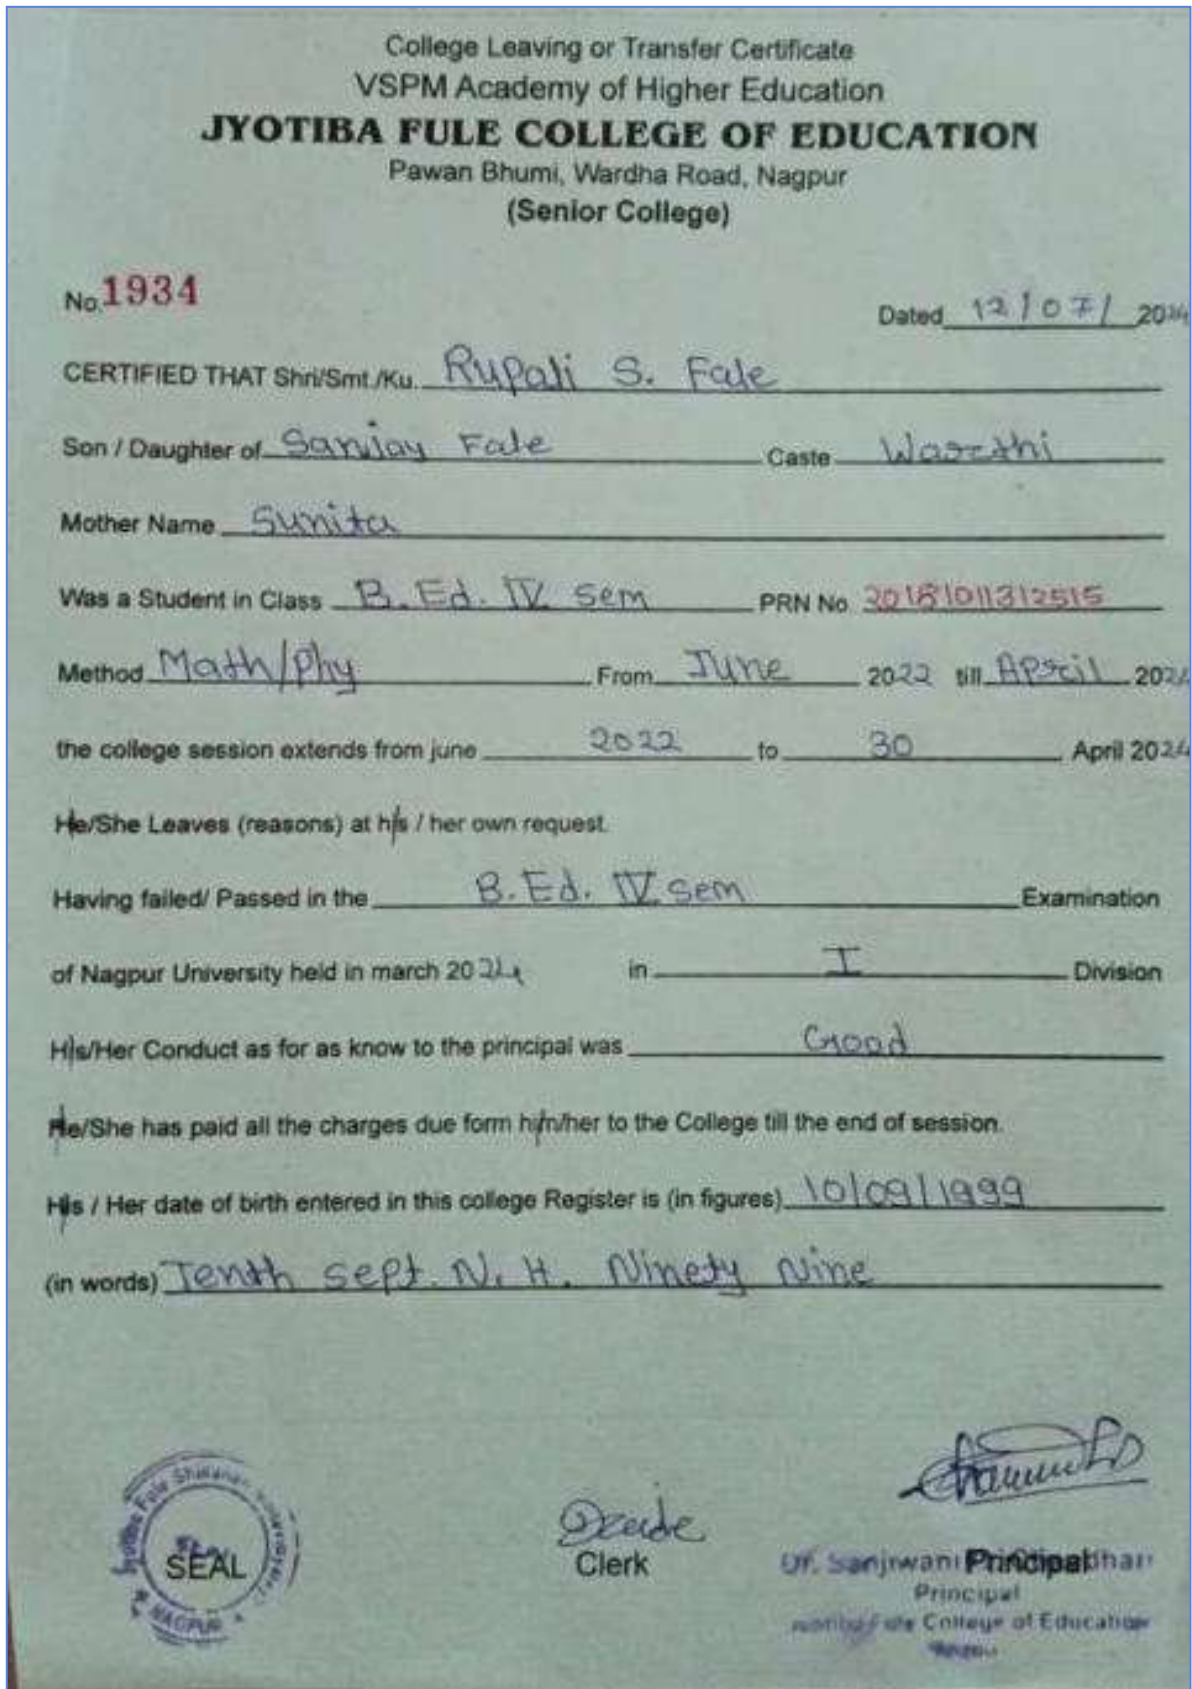 College Leaving or Transfer Certificate
VSPM Academy of Higher Education
JYOTIBA FULE COLLEGE OF EDUCATION
Pawan Bhumi, Wardha Road, Nagpur
(Senior College)
No. 1934
Dated 12/07/ 2024
CERTIFIED THAT Shri/Smt./Ku. Rupali S. Fale
Son / Daughter of Sanjay Fale Caste
Mother Name Sunita
Was a Student in Class B.Ed. IV Sem PRN No. 20181011312515
Method Math/Phy From June 2022 till April 2024
the college session extends from june 2022 to 30 April 2024
He/She Leaves (reasons) at his / her own request.
Having failed/ Passed in the B.Ed. IV Sem Examination
of Nagpur University held in march 2024 in I Division
His/Her Conduct as for as know to the principal was Good
He/She has paid all the charges due form him/her to the College till the end of session.
His / Her date of birth entered in this college Register is (in figures) 10/09/1999
(in words) Tenth Sept. N. H. Ninety Nine
Jyotiba Fule
SEAL
NAGPUR
Clerk
Principal
Dr. Sanjiwani
Principal
College of Education